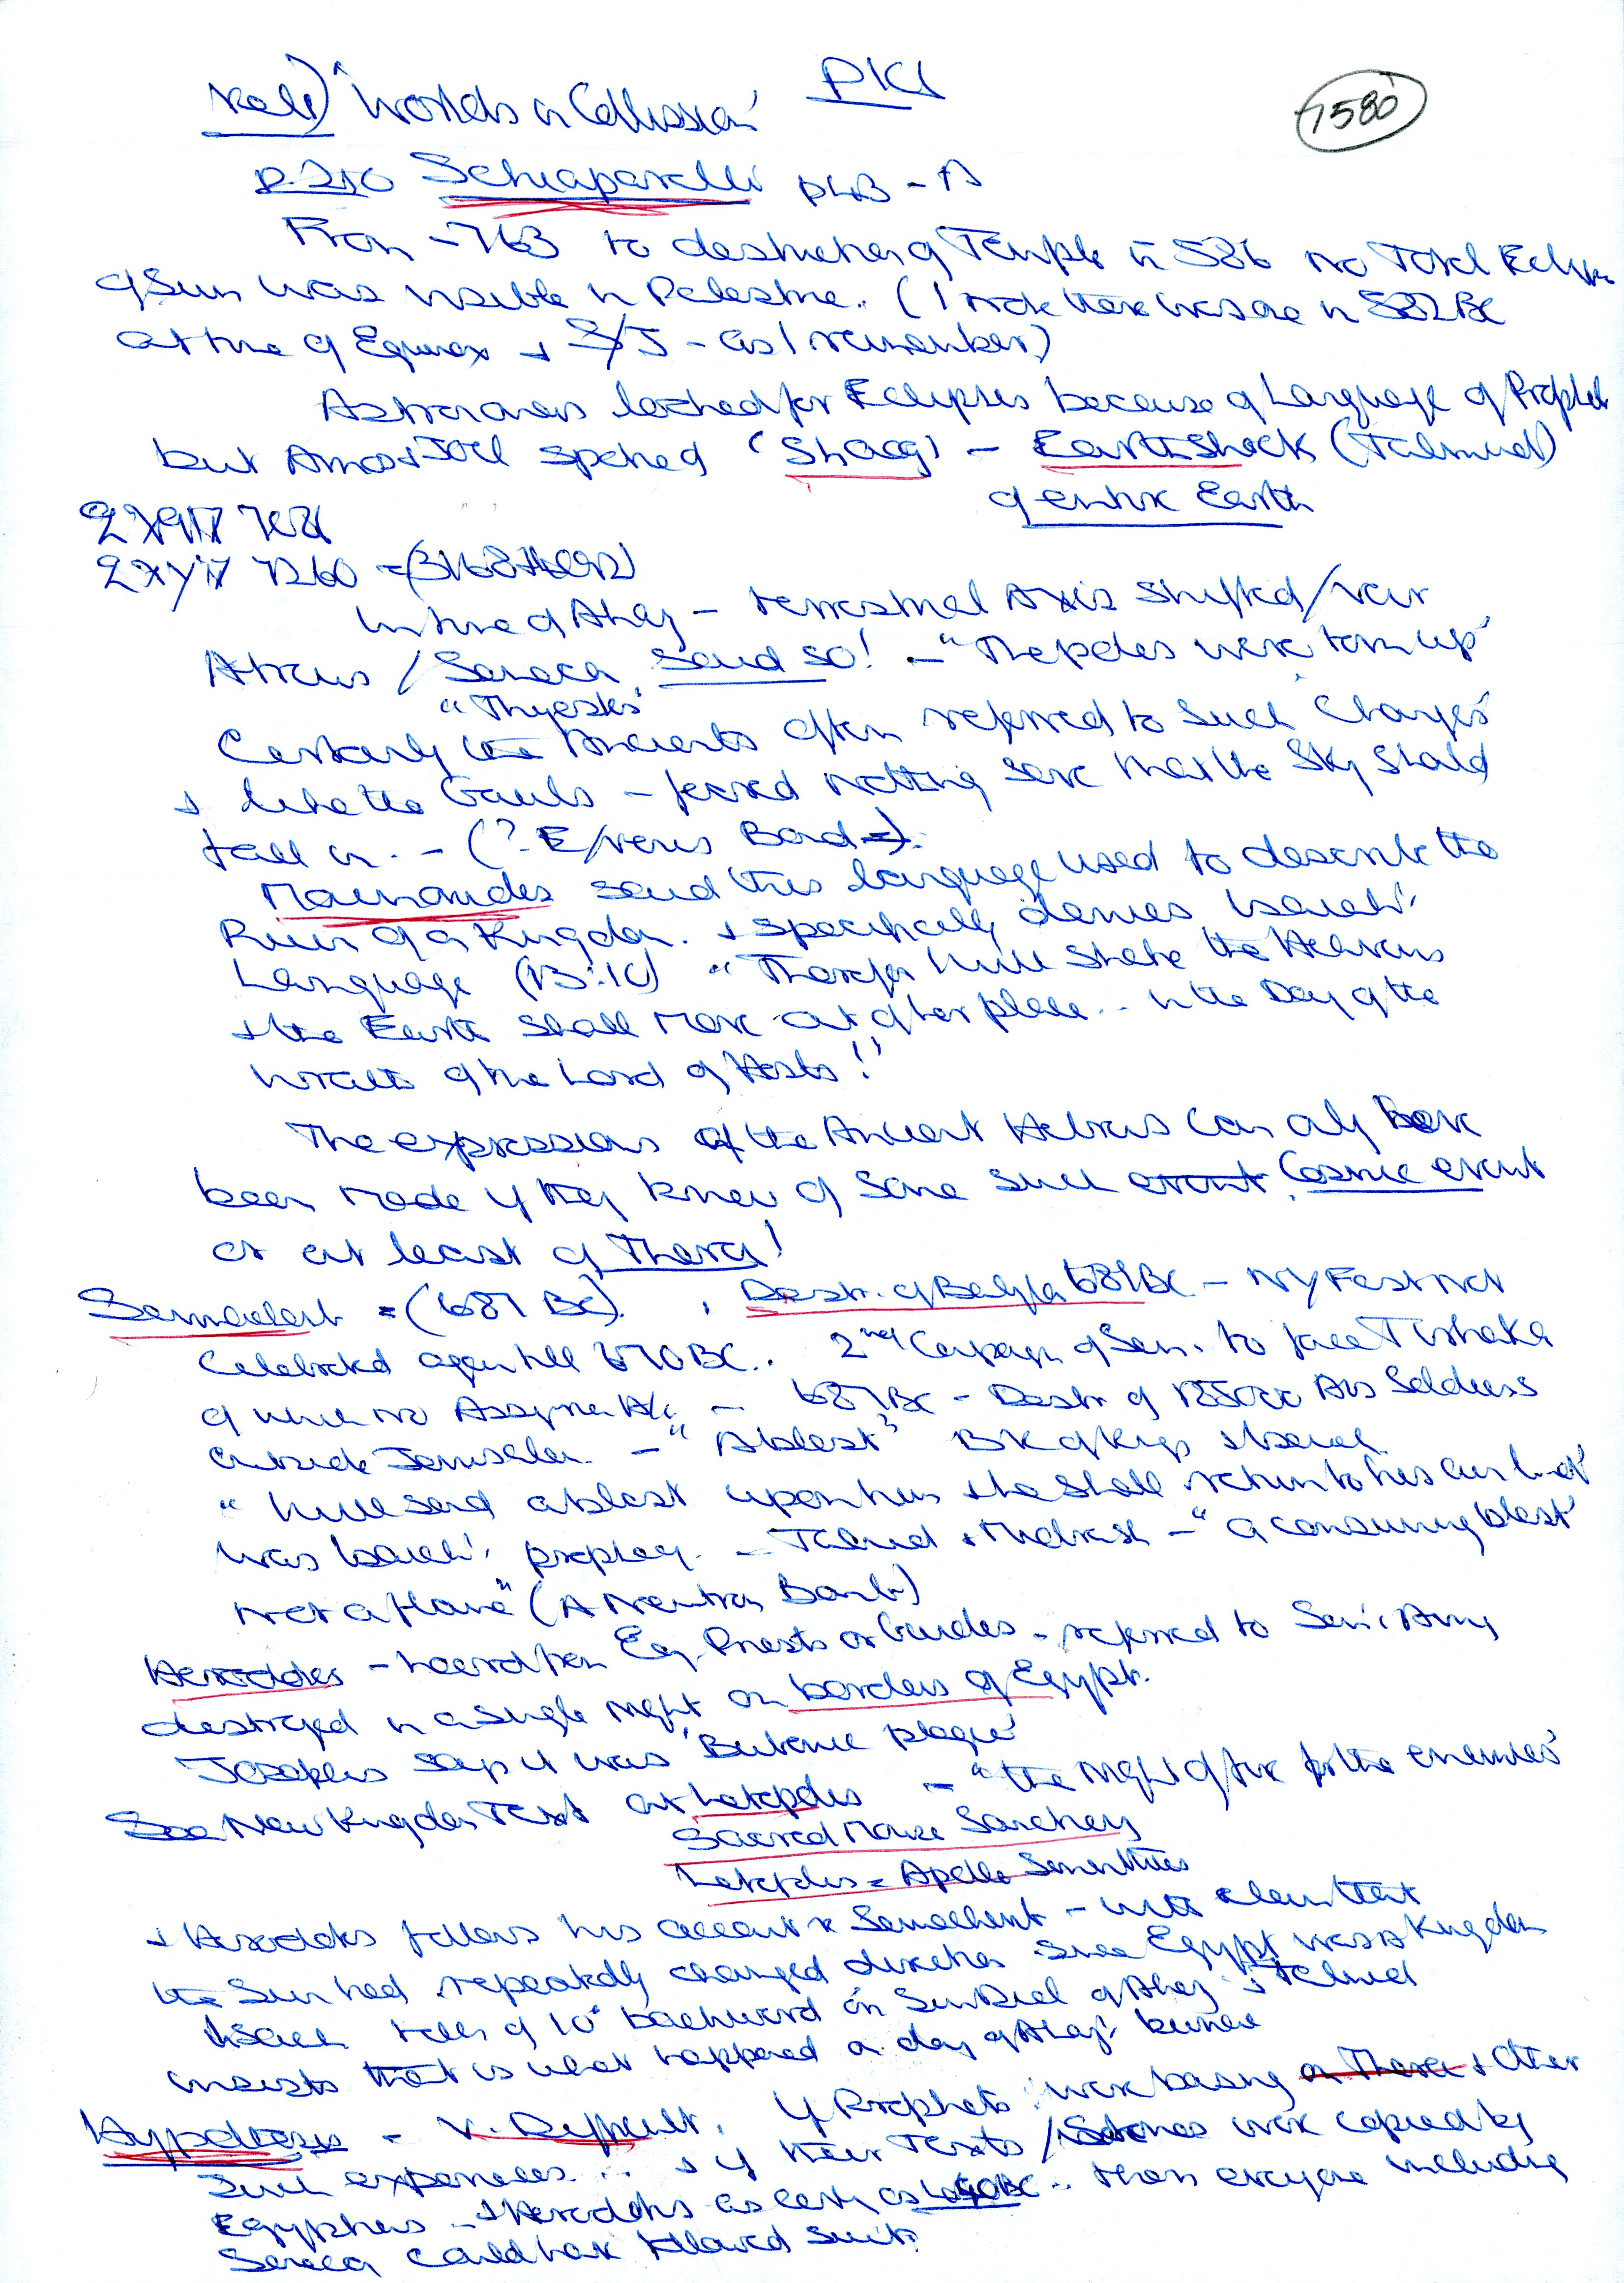 PK1
1580
"Worlds in Collission"
P. 210 Schiaparelli
From -763 to destruction of Temple in 586 no Total Eclipse
of Sun was visible in Palestine. (I note there was one in 582 BC
at time of Equinox + S/J - as I remember)
Astronomers looked for Eclipses because of Language of Prophets
but Amos + Joel spoke of 'Shaag' - Earth Shock (Talmud)
of entire Earth
In time of Ahaz - terrestrial Axis shifted/veer
Atreus / Seneca said so! - "The poles were torn up"
"Thyestes"
Certainly the Ancients often referred to such 'changes'
+ like the Gauls - feared nothing save that the Sky should
fall in. - (? E/Venus Bond =).
Maimonides said this language used to describe the
Ruin of a Kingdom. + specifically denies Isaiah's
Language (13:10) "Therefor I will shake the Heavens
+ the Earth shall move out of her place .. in the Day of the
wrath of the Lord of Hosts!"
The expressions of the Ancient Hebrews can only have
been made if they knew of some such event Cosmic event
or at least of Thera!
Sennacherib = (687 BC). Destr. of Babylon 689 BC - NY Fest not
celebrated again till 670 BC.. 2nd Campaign of Sen. to face Tirhaka
of which no Assyrian A/c - 687 BC - Destr of 185000 Ass Soldiers
outside Jerusalem - "A blast" Bk of Kings + Isaiah
"I will send a blast upon him + he shall return to his own land"
was Isaiah's prophecy. - Talmud + Midrash - "a consuming blast
not a flame" (A Neutron Bomb)
Herodotus - heard from Eg. Priests or Guides - referred to Sen's Army
destroyed in a single night on borders of Egypt.
Josephus says it was 'Bubonic plague'
See New Kingdom Text at Letopolis - "the night of fire for the enemies"
Sacred Mouse Sanctuary
Letopolis = Apollo Smintheus
+ Herodotus follows his account of Sennacherib - with claim that
the Sun had repeatedly changed direction since Egypt was a Kingdom
Isaiah tells of 10° backward on Sun Dial of Ahaz + Talmud
insists that is what happened on day of Ahaz' burial
Hypothesis - V. Difficult. If Prophets were basing on Thera + Other
such experiences ... + if their Texts / were copied by
Egyptians - + Herodotus as early as BC .. then everyone including
Seneca could have followed suit.